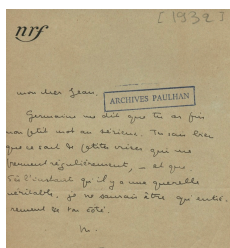 [1932]
nrf
mon cher Jean,
ARCHIVES PAULHAN
Germaine me dit que tu as pris
mon petit mot au sérieux. Tu sais bien
que ce sont de petites crises qui me
prennent régulièrement, — et que
dès l'instant qu'il y a une querelle
véritable, je ne saurais être qu'entiè-
rement de ton côté.